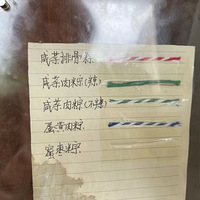 咸菜排骨粽
咸菜肉粽(辣)
咸菜肉粽(不辣)
蛋黄肉粽
蜜枣粽